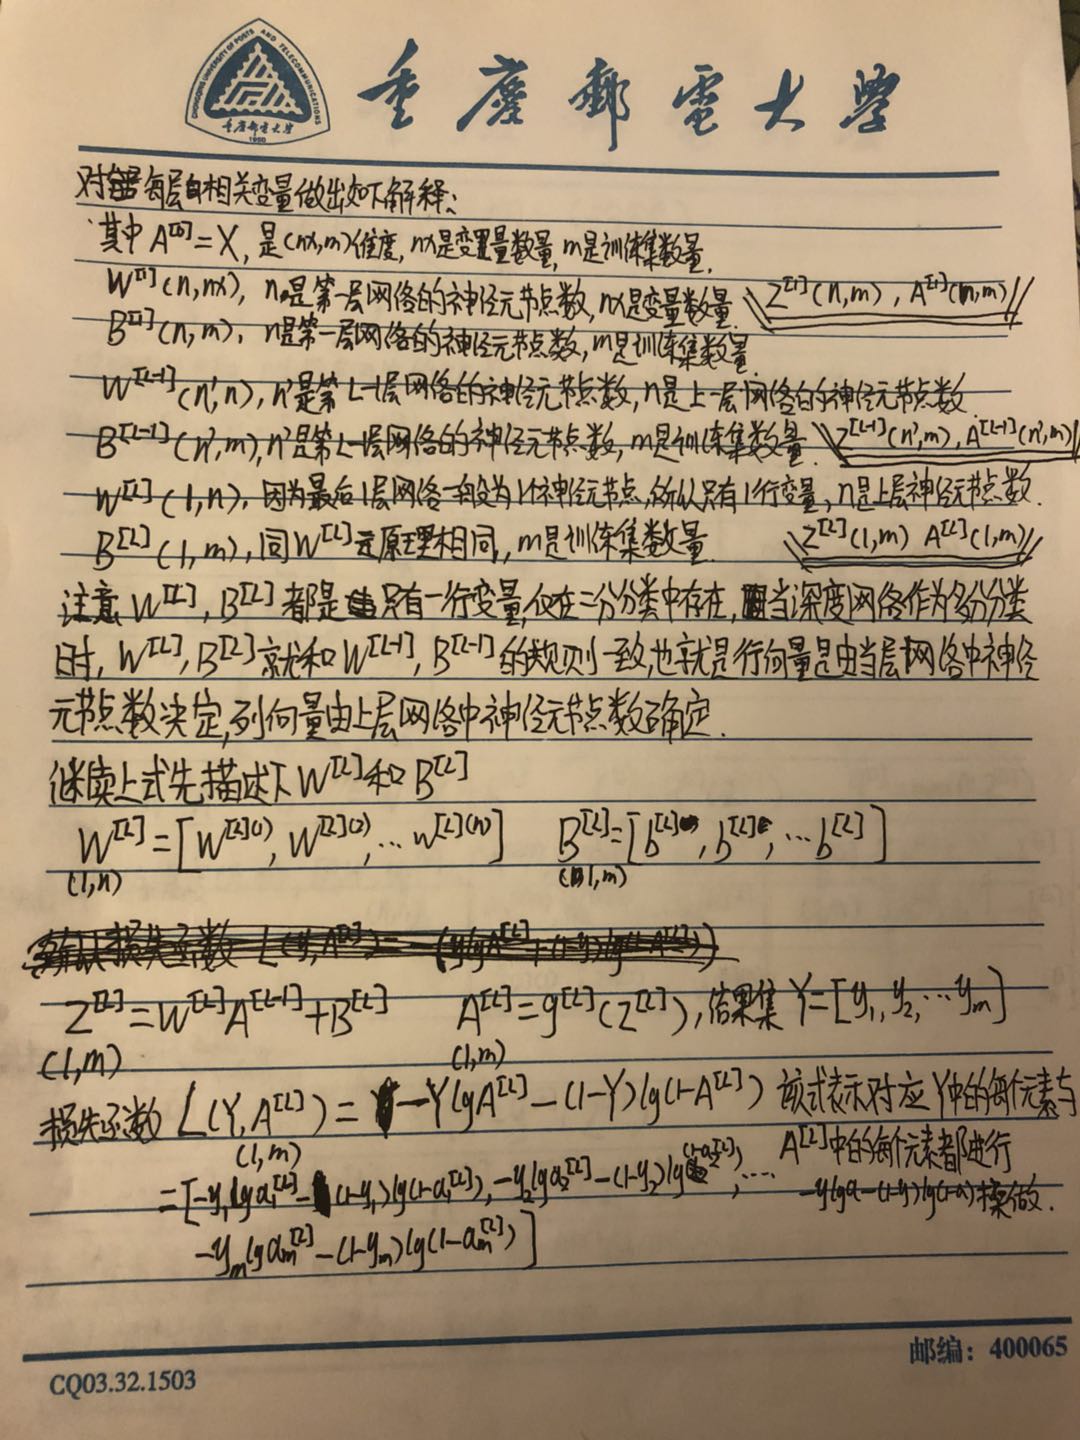 CHONGQING UNIVERSITY OF POSTS AND TELECOMMUNICATIONS
重庆邮电大学
1950
重慶郵電大學
对每层相关变量做出如下解释:
其中 A^[0] = X, 是(nx,m)维度, nx是变量数量, m是训练集数量.
W^[1](n,nx), n是第一层网络的神经元节点数, nx是变量数量. Z^[1](n,m), A^[1](n,m)
B^[1](n,m), n是第一层网络的神经元节点数, m是训练集数量.
W^[L-1](n',n), n'是第L-1层网络的神经元节点数, n是上一层网络的神经元节点数.
B^[L-1](n',m), n'是第L-1层网络的神经元节点数, m是训练集数量. Z^[L-1](n',m), A^[L-1](n',m)
W^[L](1,n), 因为最后1层网络一般设为1个神经元节点,所以只有1行变量, n是上层神经元节点数.
B^[L](1,m), 同W^[L]原理相同, m是训练集数量. Z^[L](1,m) A^[L](1,m)
注意 W^[L], B^[L] 都是只有一行变量,仅在二分分类中存在, 当深度网络作为多分分类
时, W^[L], B^[L] 就和 W^[L-1], B^[L-1] 的规则一致,也就是行向量是由当层网络中神经
元节点数决定,列向量由上层网络中神经元节点数确定.
继续上式先描述下 W^[L] 和 B^[L]
W^[L] = [W^[L](1), W^[L](2), ... w^[L](n)] B^[L] = [b^[L], b^[L], ... b^[L]]
(1,n) (1,m)
Z^[L] = W^[L]A^[L-1] + B^[L] A^[L] = g^[L](Z^[L]), 结果集 Y = [y₁, y₂, ... yₘ]
(1,m) (1,m)
损失函数 L(Y, A^[L]) = -YlgA^[L] - (1-Y)lg(1-A^[L]) 该式表示对应Y中的每个元素与
(1,m) A^[L]中的每个元素都进行
= [-y₁lga₁^[L] - (1-y₁)lg(1-a₁^[L]), -y₂lga₂^[L] - (1-y₂)lg(1-a₂^[L]), ... -ylga-(1-y)lg(1-a)操做.
-yₘlgaₘ^[L] - (1-yₘ)lg(1-aₘ^[L])]
邮编: 400065
CQ03.32.1503